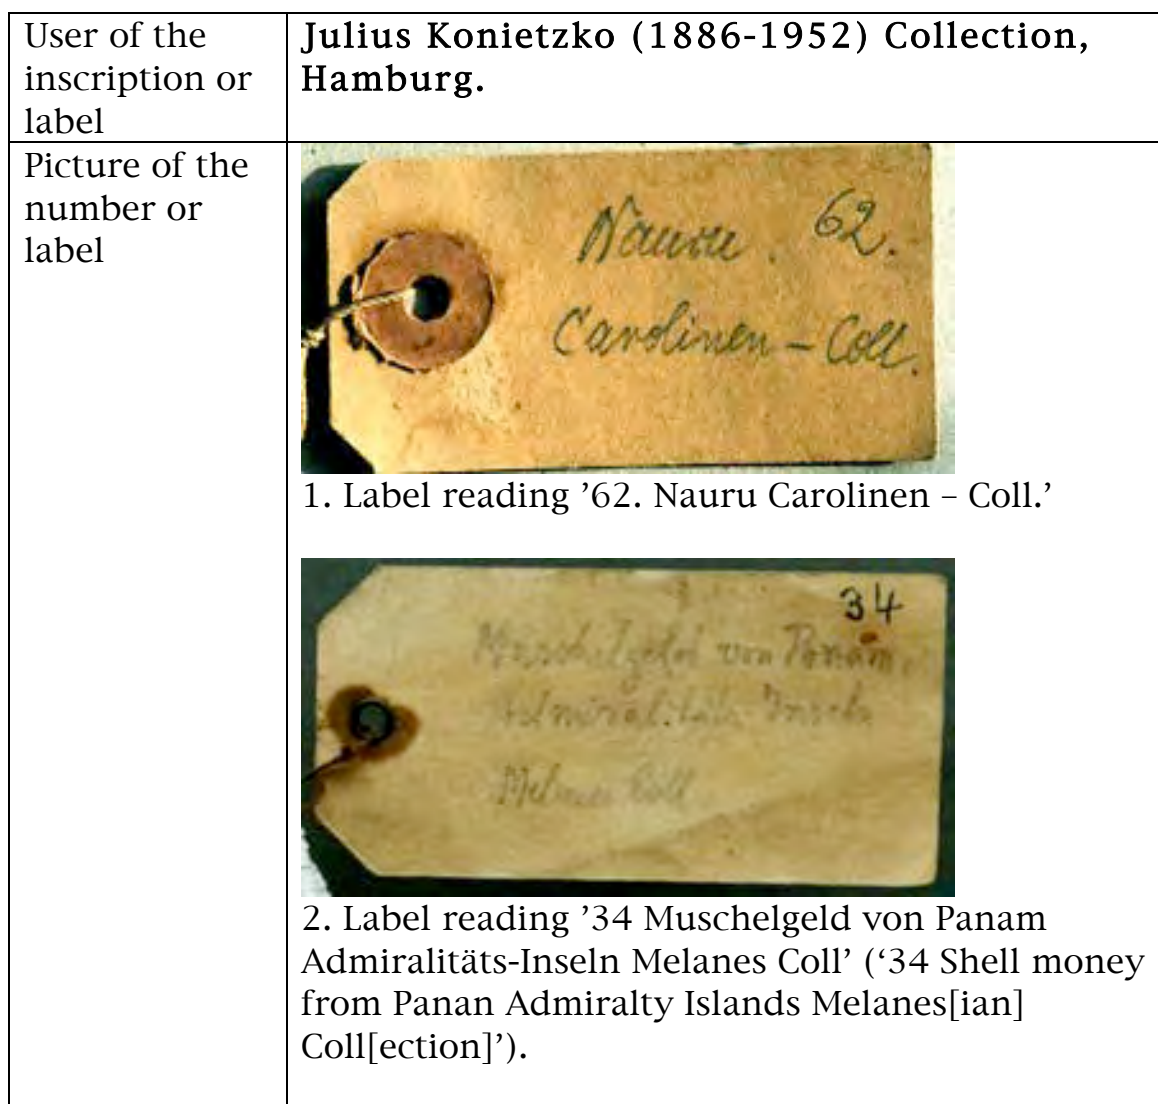 User of the
inscription or
label
Julius Konietzko (1886-1952) Collection,
Hamburg.
Picture of the
number or
label
Nauru. 62.
Carolinen – Coll.
1. Label reading ’62. Nauru Carolinen – Coll.’
34
Muschelgeld von Panam
Admiralitäts Inseln
Melanes Coll
2. Label reading ’34 Muschelgeld von Panam
Admiralitäts-Inseln Melanes Coll’ (‘34 Shell money
from Panan Admiralty Islands Melanes[ian]
Coll[ection]’).